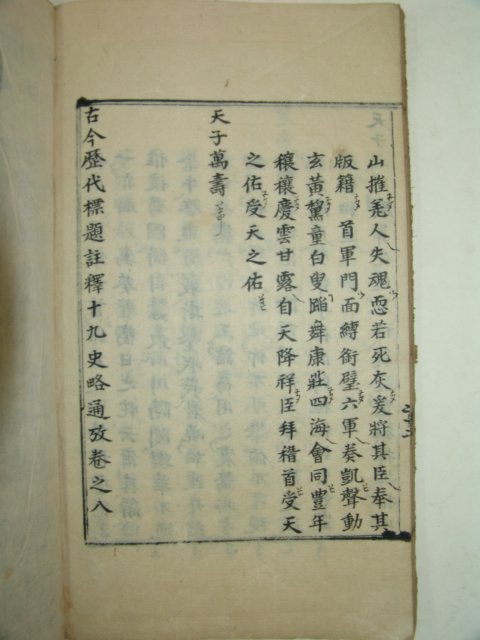 山摧羗人失魂恧若死灰爰將其臣奉其
版籍 首軍門面縛銜璧六軍奏凱聲動
玄黃鬒童白叟蹈舞康莊四海會同豐年
穰穰慶雲甘露自天降祥臣拜稽首受天
之佑受天之佑
天子萬壽
古今歷代標題註釋十九史略通攷卷之八